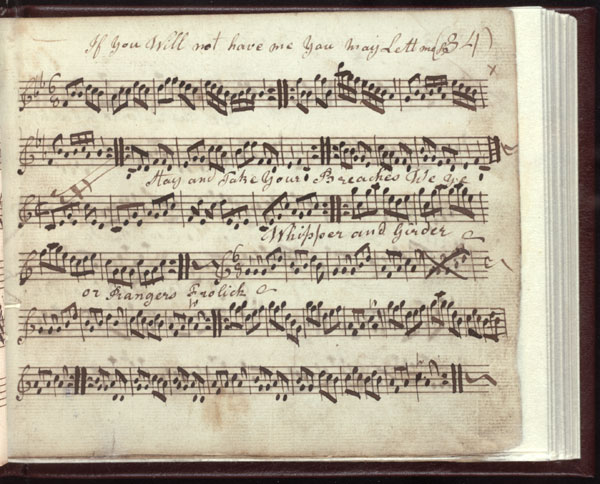 If You Will not have me You may Lett me (34)
Stay and Take Your Breaches We Ye
Whipper and Girder
or Rangers Frolick